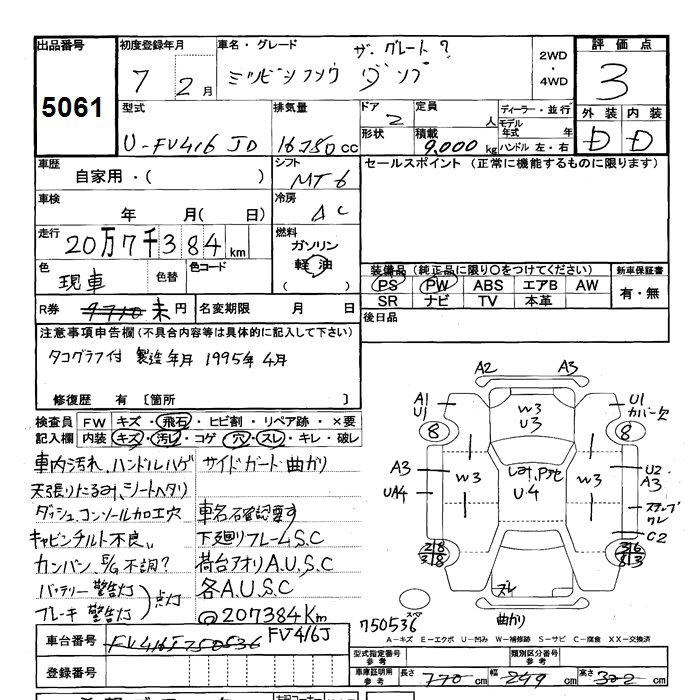 出品番号 5061
初度登録年月 7 2月
車名・グレード ザ・グレート? ミツビシフソウ ダンプ
2WD・4WD
評価点 3
型式 U-FV416JD
排気量 16750cc
ドア 2
定員 人
形状
積載 9,000kg
ディーラー・並行
モデル年式 年
ハンドル 左・右
外装 D 内装 D
車歴 自家用・( )
シフト MT6
セールスポイント (正常に機能するものに限ります)
車検 年 月( 日)
冷房 AC
走行 20万7千384km
燃料 ガソリン 軽油 ( )
色 現車 色替 色コード
装備品 (純正品に限り○をつけてください) 新車保証書
PS PW ABS エアB AW 有・無
SR ナビ TV 本革
R券 9710 未 円 名変期限 月 日
後日品
注意事項申告欄 (不具合内容等は具体的に記入して下さい)
タコグラフ付 製造年月 1995年4月
修復歴 有 〔箇所 〕
検査員 FW キズ・飛石・ヒビ割・リペア跡・×要
記入欄 内装 キズ・汚れ・コゲ・穴・スレ・キレ・破レ
車内汚れ、ハンドルハゲ サイドガード曲ガリ
天張りたるみ、シートヘタリ
ダッシュ.コンソール加工穴 車名石確認要す
キャビンチルト不良、 下廻りフレームS.C
カンバン、E/G不調? 荷台アオリA.U.S.C
バッテリー警告灯 各A.U.S.C
ブレーキ警告灯 点灯 @207384Km
A2 A3
A1 U1
U1 カバー欠
8 8
W3 U3
A3 W3 W3 U2 A3
UA4 U4
ステップワレ
C2
2/8 3/8 3/6 3/3
ズレ
スペ
750536 曲ガリ
A－キズ E－エクボ U－凹み W－補修跡 S－サビ C－腐食 XX－交換済
車台番号 FV416J750536 FV416J
登録番号
型式指定番号 参考 類別区分番号 参考
車庫証明用 参考 長さ 770cm 幅 249cm 高さ 302cm